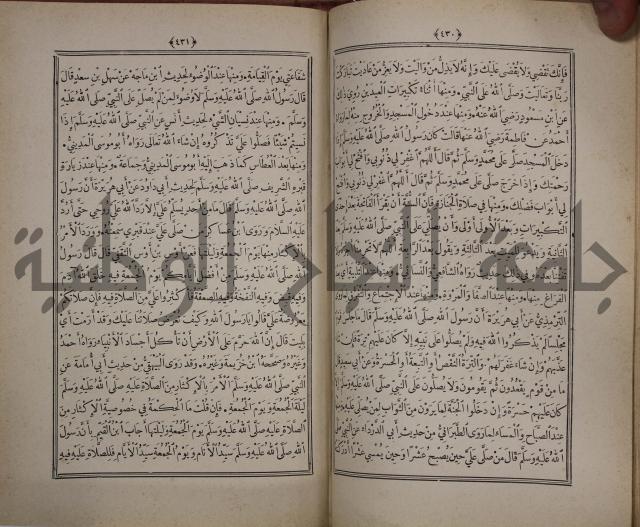 ﴿٤٣٠﴾
فإنك تقضي ولا يقضى عليك وإنه لا يذل من واليت ولا يعز من عاديت تباركت
ربنا وتعاليت وصلى الله على النبي ومنها أثناء تكبيرات العيدين روي ذلك
عن ابن مسعود رضي الله عنه ومنها عند دخول المسجد والخروج منه لما رواه
أحمد عن فاطمة رضي الله عنها قالت كان رسول الله صلى الله عليه وسلم إذا
دخل المسجد صلى على محمد وسلم ثم قال اللهم اغفر لي ذنوبي وافتح لي أبواب
رحمتك وإذا خرج صلى على محمد وسلم ثم قال اللهم اغفر لي ذنوبي وافتح
لي أبواب فضلك ومنها في صلاة الجنازة فإن السنة أن يقرأ الفاتحة بعد
التكبيرات وبعد الأولى أولى وأن يصلي على النبي صلى الله عليه وسلم
الثانية ويدعو للميت بعد الثالثة ويقول بعد الرابعة اللهم لا تحرمنا أجره
رواه الشافعي والنسائي ومنها عند التلبية
الفراغ منها ومنها عند الصفا والمروة ومنها عند الاجتماع والتفرق
الترمذي عن أبي هريرة أن رسول الله صلى الله عليه وسلم قال ما جلس
مجلسا لم يذكروا الله فيه ولم يصلوا على نبيه إلا كان عليهم ترة فإن شاء
عذبهم وإن شاء غفر لهم والترة النقص أو التبعة أو الحسرة وعن أبي سعيد
ما من قوم يقعدون ثم يقومون ولا يصلون على النبي صلى الله عليه وسلم إلا
كان عليهم حسرة وإن دخلوا الجنة لما يرون من الثواب لمن صلى عليه
عند الصباح والمساء لما روى الطبراني من حديث أبي الدرداء عن النبي
الله عليه وسلم قال من صلى علي حين يصبح عشرا وحين يمسي عشرا أدركته
﴿٤٣١﴾
شفاعتي يوم القيامة ومنها عند الوضوء لحديث ابن ماجه عن سهل بن سعد قال
قال رسول الله صلى الله عليه وسلم لا وضوء لمن لم يصل على النبي صلى الله عليه
وسلم ومنها عند نسيان الشيء لحديث أنس عن النبي صلى الله عليه وسلم إذا
نسيتم شيئا فصلوا علي تذكروه إن شاء الله تعالى رواه أبو موسى المديني
ومنها بعد العطاس كما ذهب إليه أبو موسى المديني وجماعة ومنها عند زيارة
قبره الشريف صلى الله عليه وسلم لحديث أبي داود عن أبي هريرة أن رسول
الله صلى الله عليه وسلم قال ما من أحد يسلم علي إلا رد الله علي روحي حتى أرد
عليه السلام وروى ابن عساكر من صلى علي عند قبري سمعته وورد الأمر
منها يوم الجمعة وليلتها فعن أوس بن أوس الثقفي قال قال رسول
الله صلى الله عليه وسلم من أفضل أيامكم يوم الجمعة فيه خلق آدم
وفيه قبض وفيه النفخة وفيه الصعقة فأكثروا علي من الصلاة فيه فإن صلاتكم
معروضة علي قالوا يا رسول الله وكيف تعرض صلاتنا عليك وقد أرمت أي
بليت قال إن الله حرم على الأرض أن تأكل أجساد الأنبياء رواه أحمد
وغيره وصححه ابن خزيمة وغيره وقد روى البيهقي من حديث أبي أمامة عن
النبي صلى الله عليه وسلم الأمر بالإكثار من الصلاة عليه صلى الله عليه وسلم
ليلة الجمعة ويوم الجمعة فإن قلت ما الحكمة في خصوصية الإكثار من
الصلاة عليه صلى الله عليه وسلم يوم الجمعة وليلتها أجاب ابن القيم بأن رسول
الله صلى الله عليه وسلم سيد الأنام ويوم الجمعة سيد الأيام فللصلاة عليه فيه
جامعة النجاح الوطنية